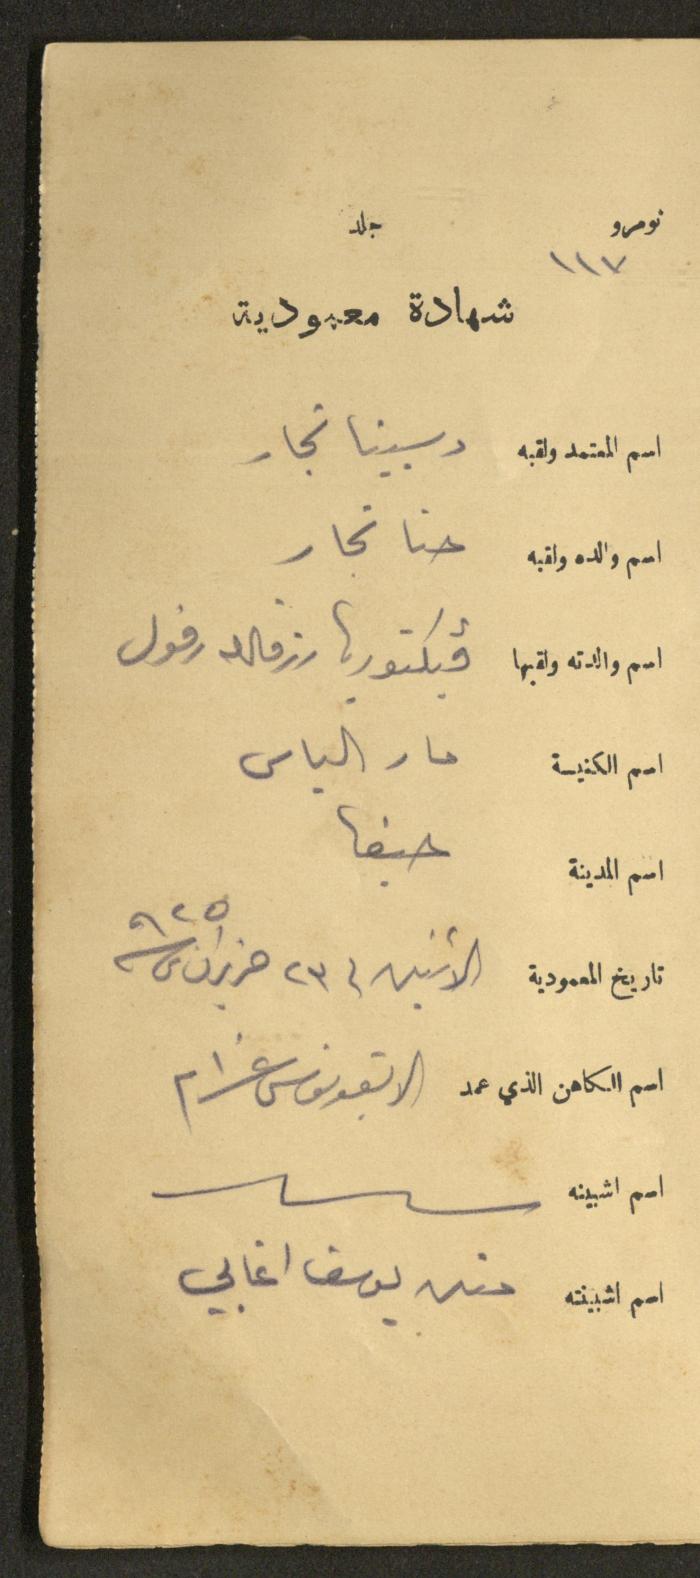 نومرو جلد
١١٧
شهادة معمودية
اسم المعتمد ولقبه نجار
اسم والده ولقبه حنا نجار
اسم والدته ولقبها ڤيكتوريا رزق الله رفول
اسم الكنيسة مار الياس
اسم المدينة حيفا
تاريخ المعمودية الاثنين في ٢٣ حزيران سنة ٩٢٥
اسم الكاهن الذي عمد
اسم اشبينه
اسم اشبينته يوسف